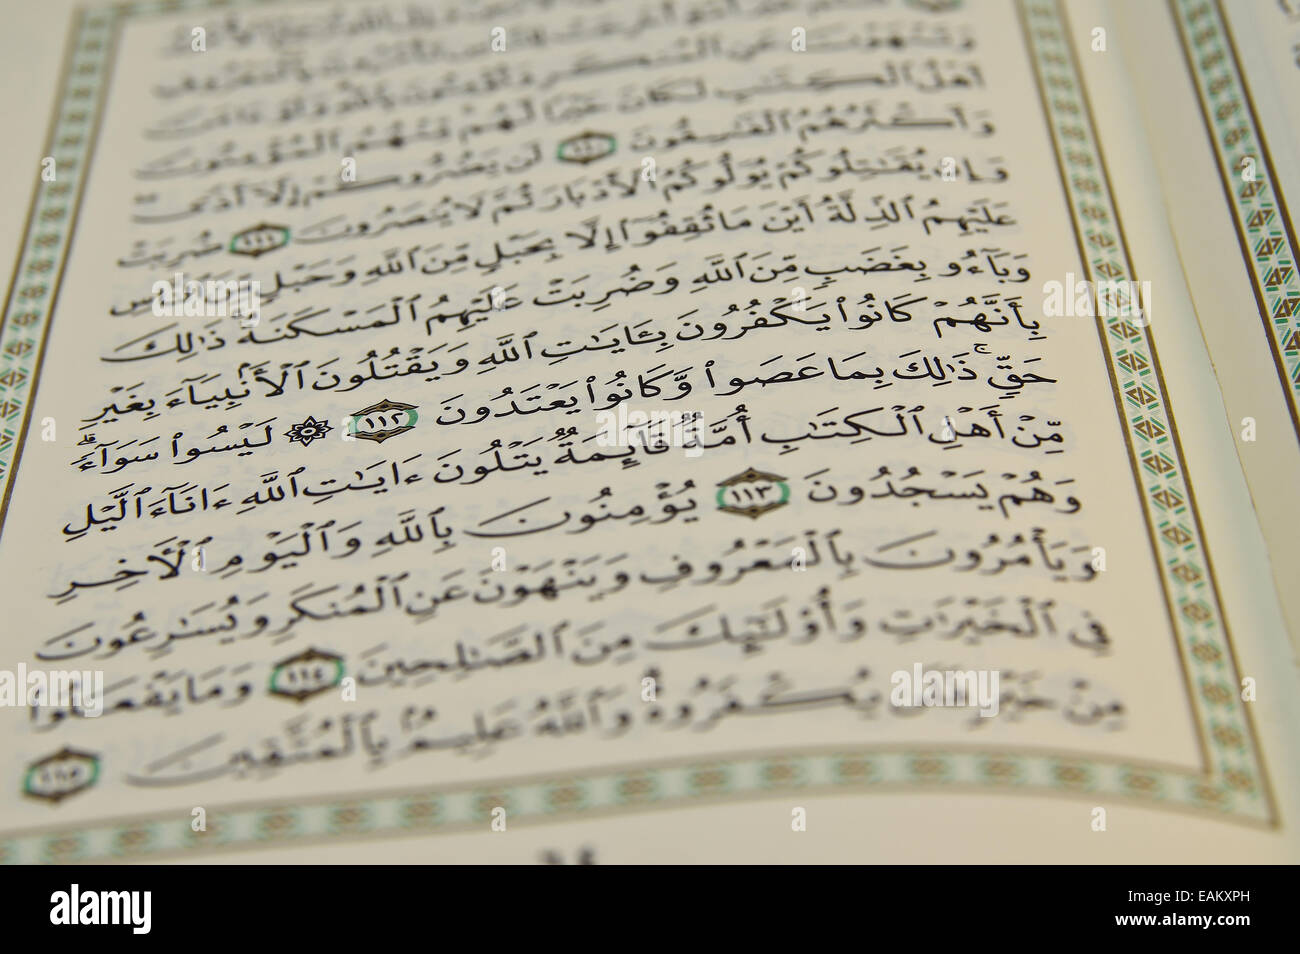 وَتَنْهَوْنَ عَنِ ٱلْمُنكَرِ وَتُؤْمِنُونَ بِٱللَّهِ وَلَوْ ءَامَنَ
أَهْلُ ٱلْكِتَٰبِ لَكَانَ خَيْرًا لَّهُم مِّنْهُمُ ٱلْمُؤْمِنُونَ
وَأَكْثَرُهُمُ ٱلْفَٰسِقُونَ ١١٠ لَن يَضُرُّوكُمْ إِلَّآ أَذًى
وَإِن يُقَٰتِلُوكُمْ يُوَلُّوكُمُ ٱلْأَدْبَارَ ثُمَّ لَا يُنصَرُونَ ١١١ ضُرِبَتْ
عَلَيْهِمُ ٱلذِّلَّةُ أَيْنَ مَا ثُقِفُوٓا۟ إِلَّا بِحَبْلٍ مِّنَ ٱللَّهِ وَحَبْلٍ مِّنَ ٱلنَّاسِ
وَبَآءُو بِغَضَبٍ مِّنَ ٱللَّهِ وَضُرِبَتْ عَلَيْهِمُ ٱلْمَسْكَنَةُ ۚ ذَٰلِكَ
بِأَنَّهُمْ كَانُوا۟ يَكْفُرُونَ بِـَٔايَٰتِ ٱللَّهِ وَيَقْتُلُونَ ٱلْأَنۢبِيَآءَ بِغَيْرِ
حَقٍّ ۚ ذَٰلِكَ بِمَا عَصَوا۟ وَّكَانُوا۟ يَعْتَدُونَ ١١٢ ۞ لَيْسُوا۟ سَوَآءً ۗ
مِّنْ أَهْلِ ٱلْكِتَٰبِ أُمَّةٌ قَآئِمَةٌ يَتْلُونَ ءَايَٰتِ ٱللَّهِ ءَانَآءَ ٱلَّيْلِ
وَهُمْ يَسْجُدُونَ ١١٣ يُؤْمِنُونَ بِٱللَّهِ وَٱلْيَوْمِ ٱلْـَٔاخِرِ
وَيَأْمُرُونَ بِٱلْمَعْرُوفِ وَيَنْهَوْنَ عَنِ ٱلْمُنكَرِ وَيُسَٰرِعُونَ
فِى ٱلْخَيْرَٰتِ وَأُو۟لَٰٓئِكَ مِنَ ٱلصَّٰلِحِينَ ١١٤ وَمَا يَفْعَلُوا۟
مِنْ خَيْرٍ فَلَن يُكْفَرُوهُ ۗ وَٱللَّهُ عَلِيمٌۢ بِٱلْمُتَّقِينَ ١١٥
٦٤
alamy
Image ID: EAKXPH
www.alamy.com